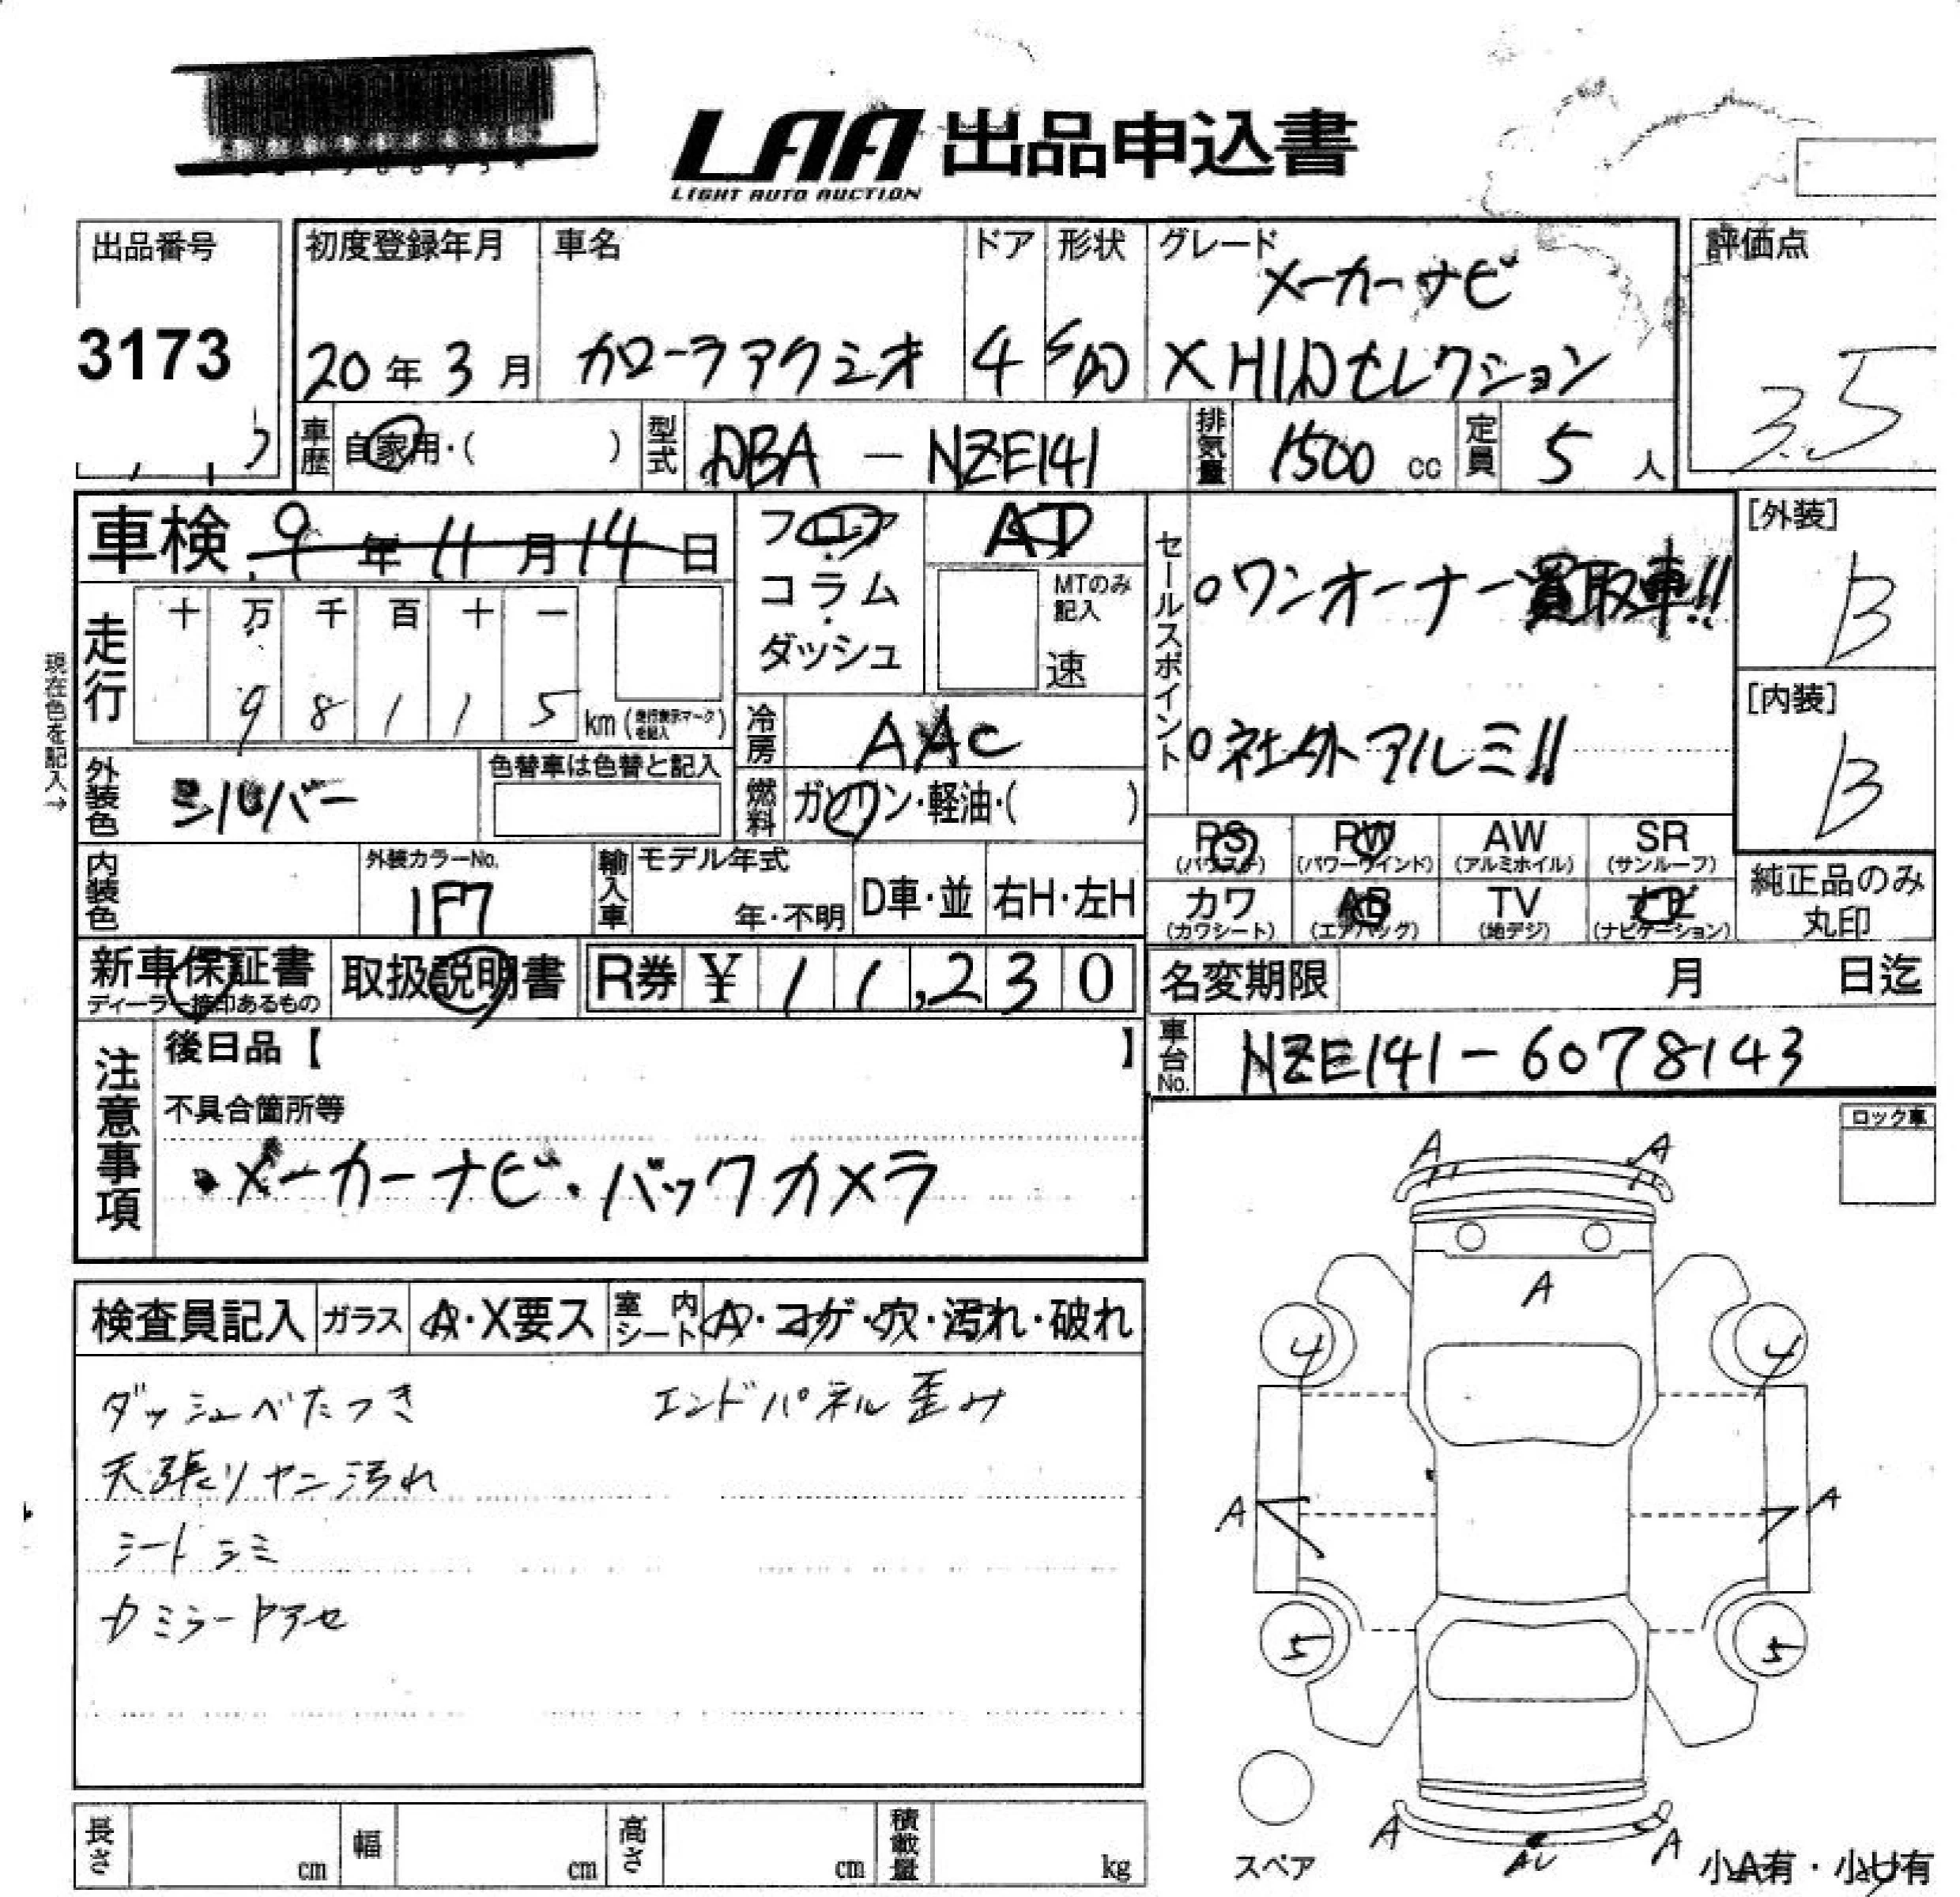 LAA 出品申込書
LIGHT AUTO AUCTION
出品番号
3173
初度登録年月 車名 ドア 形状 グレード 評価点
メーカーナビ
20年3月 カローラアクシオ 4 SD X HIDセレクション 3.5
車歴 自家用・( ) 型式 DBA - NZE141 排気量 1500 cc 定員 5 人
車検 9年11月14日
フロア AT
コラム MTのみ記入
ダッシュ 速
セールスポイント
○ワンオーナー買取車!!
○社外アルミ!!
[外装]
B
[内装]
B
現在色を記入→
走行 十 万 千 百 十 一
9 8 1 1 5 km (走行表示マークを記入)
冷房 AAC
外装色 シルバー 色替車は色替と記入
燃料 ガソリン・軽油・( )
PS (パワステ) PW (パワーウインド) AW (アルミホイル) SR (サンルーフ)
カワ (カワシート) AB (エアバッグ) TV (地デジ) ナビ (ナビゲーション)
純正品のみ
丸印
内装色 外装カラーNo. 1F7 輸入車 モデル年式 年・不明 D車・並 右H・左H
新車保証書 ディーラー捺印あるもの 取扱説明書 R券 ¥ 11,230
名変期限 月 日迄
車台No. NZE141-6078143
注意事項
後日品【 】
不具合箇所等
・メーカーナビ・バックカメラ
ロック車
検査員記入 ガラス A・X要ス 室内シート A・コゲ・穴・汚れ・破れ
ダッシュべたつき エンドパネル歪み
天張りヤニ汚れ
シートシミ
A A
A
4 4
A A
5 5
A A
スペア
小A有・小U有
長さ cm 幅 cm 高さ cm 積載量 kg